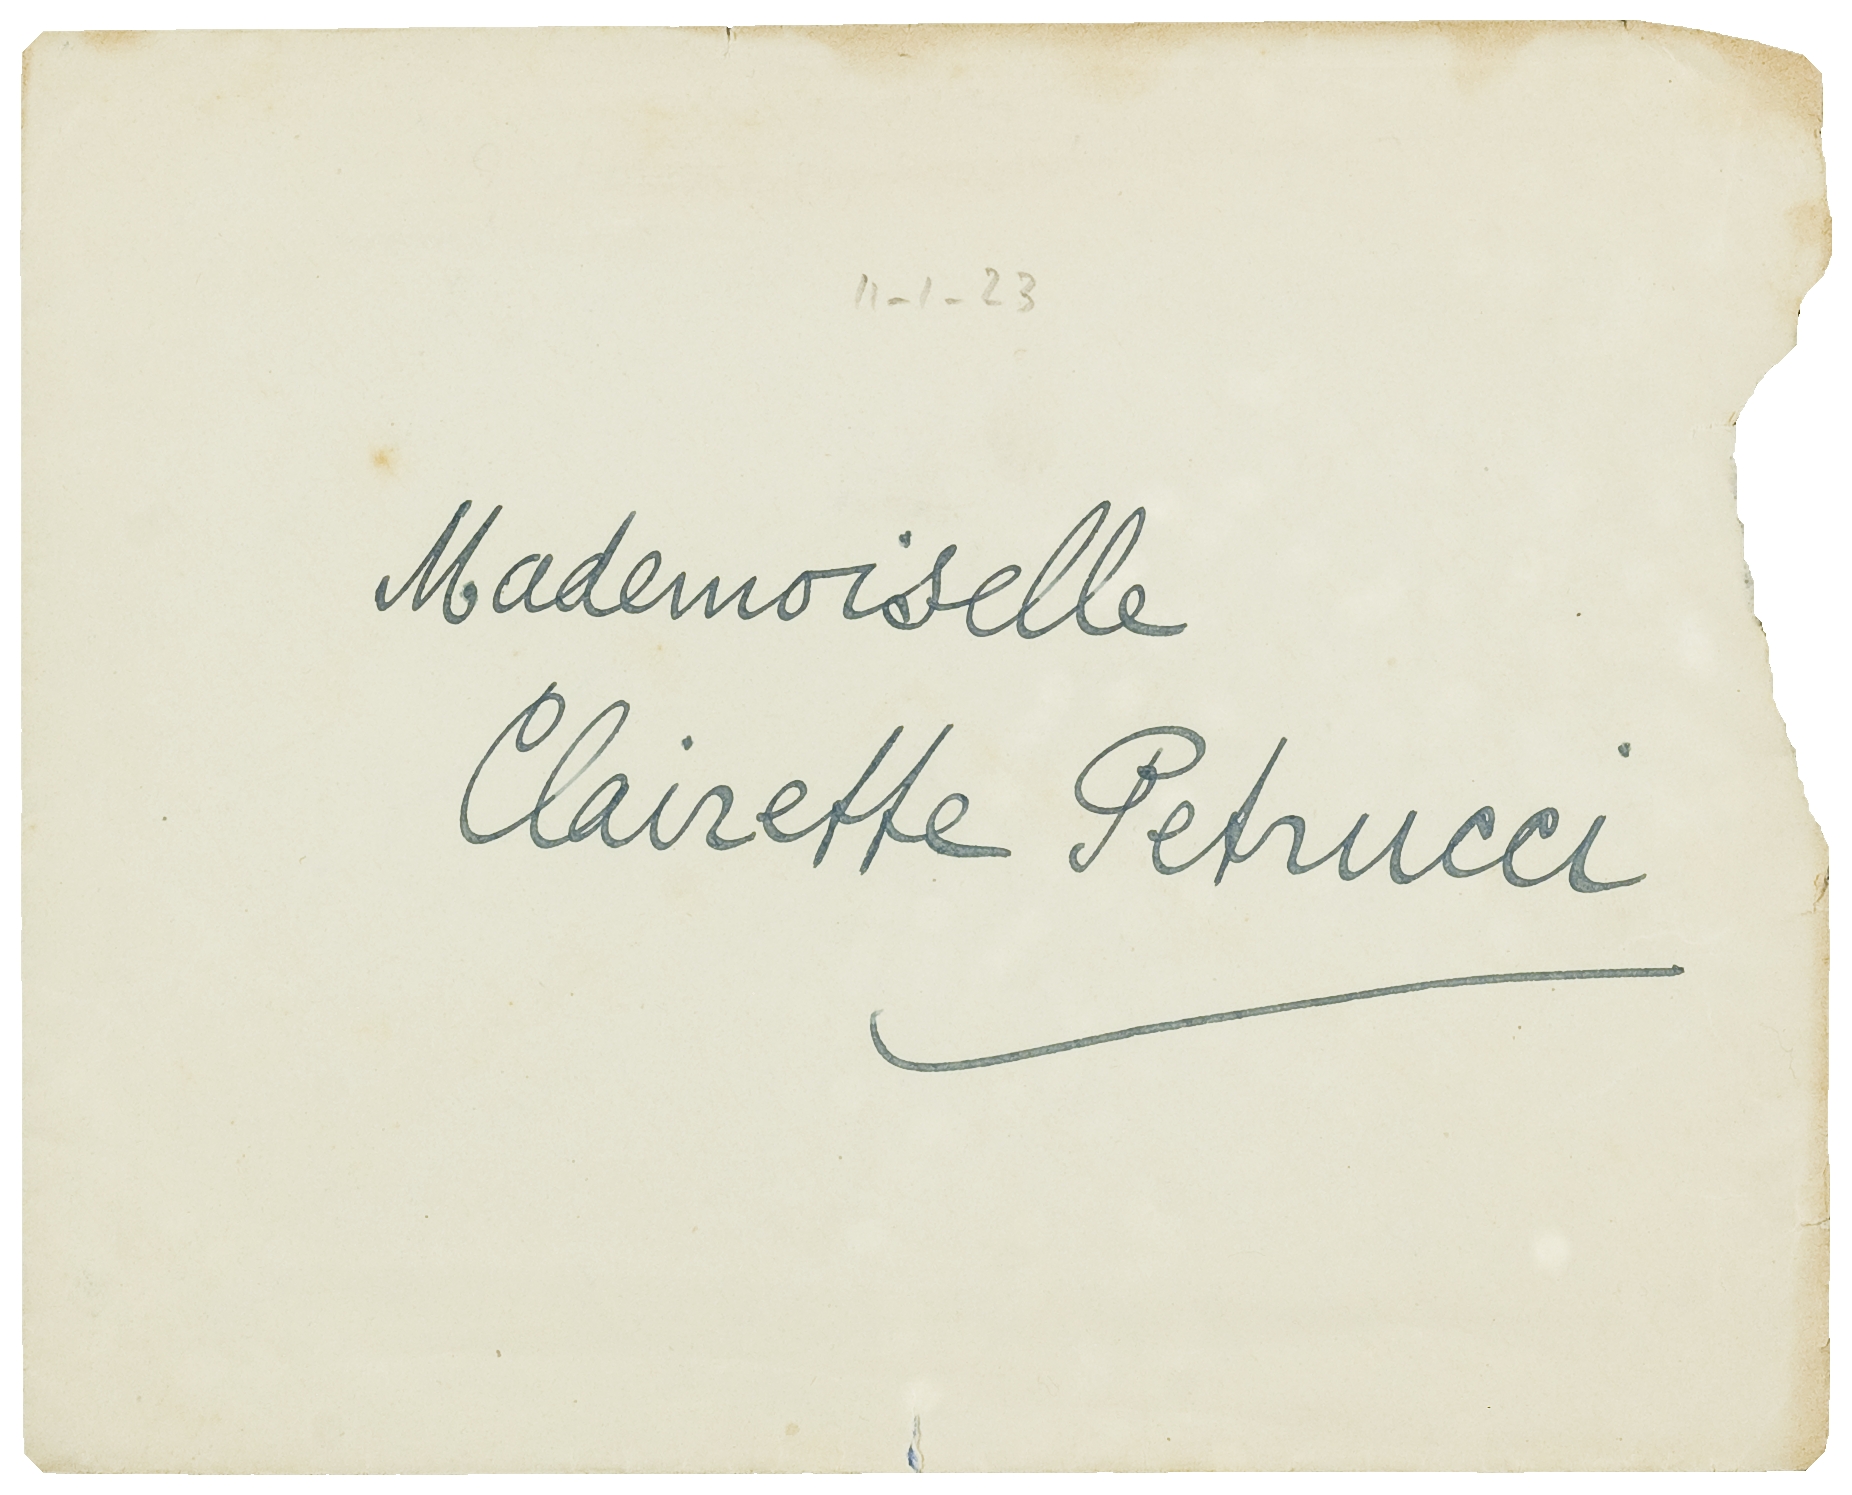 11-1-23
Mademoiselle
Clairette Petrucci